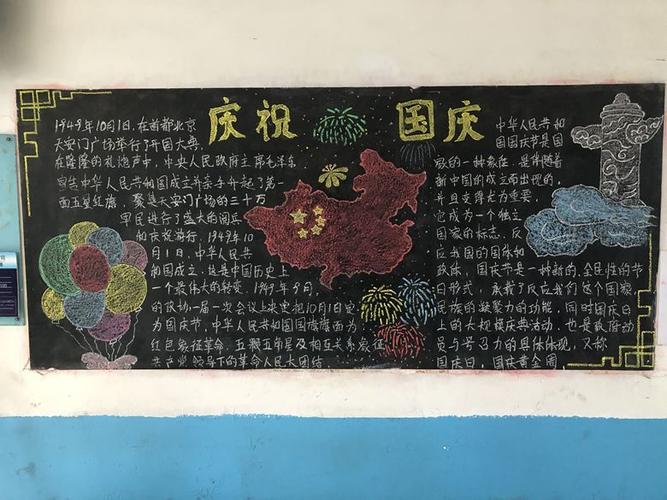 庆祝 国庆
1949年10月1日,在首都北京
天安门广场举行了开国大典,
在隆隆的礼炮声中,中央人民政府主席毛泽东
宣告中华人民共和国成立并亲手升起了第
一面五星红旗。聚集天安门广场的三十万
军民进行了盛大的阅兵
和庆祝游行。1949年10
月1日,中华人民共
和国成立,这是中国历史上
一个最伟大的转变。1949年9月,
的政协一届一次会议上决定把10月1日定
为国庆节,中华人民共和国国旗旗面为
红色象征革命,五颗五角星及相互关系象征
共产党领导下的革命人民大团结
中华人民共和
国国庆节是国
家的一种象征,是伴随着
新中国的成立而出现的,
并且变得尤为重要,
它成为一个独立
国家的标志,反
应我国的国体和
政体,国庆节是一种新的、全民性的节
日形式,承载了反应我们这个国家
民族的凝聚力的功能,同时国庆日
上的大规模庆典活动,也是政府动
员与号召力的具体体现,又称
国庆日,国庆黄金周,